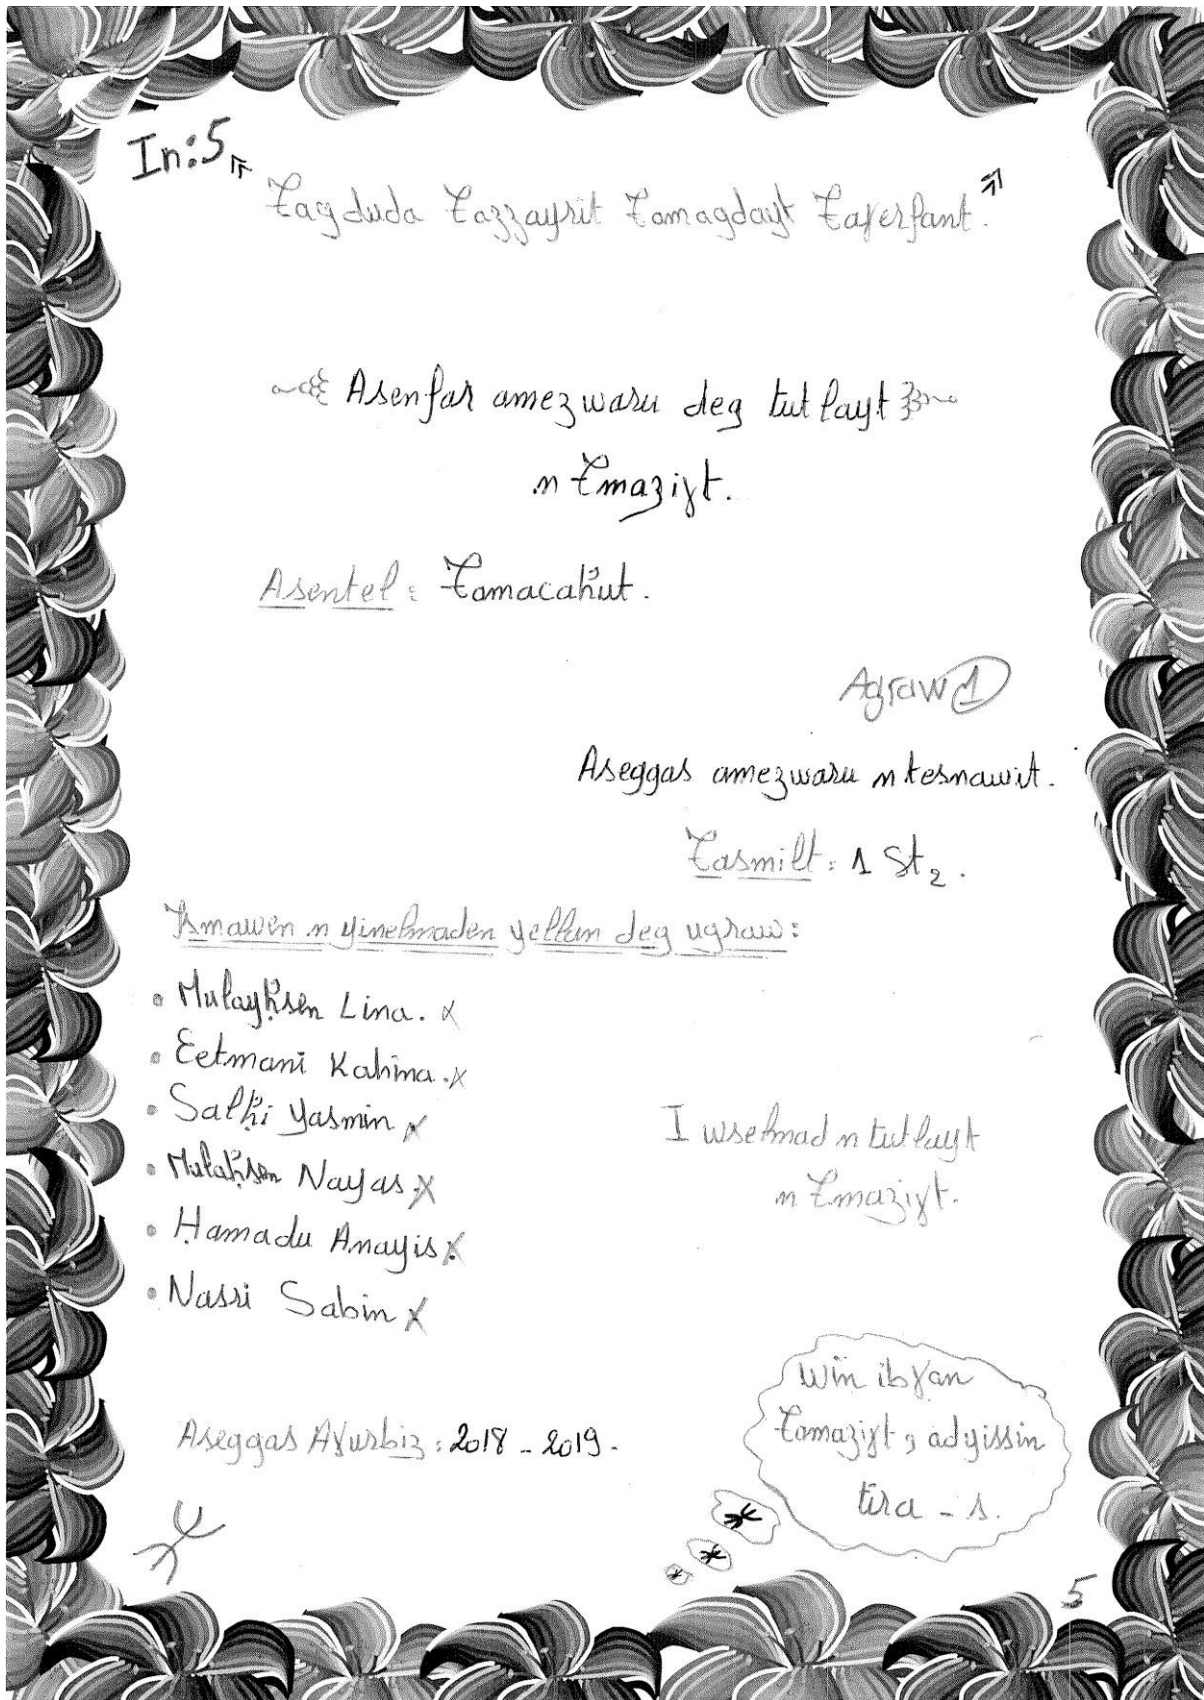 In:5
« Tagduda Tazzayrit Tamagdayt Taɣerfant. »
Asenfar amezwaru deg tutlayt
n Tmaziɣt.
Asentel : Tamacahut.
Agraw 1
Aseggas amezwaru n tesnawit.
Tasmilt : 1 St₂.
Ismawen n yinelmaden yellan deg ugraw :
• Mulayḥsen Lina. x
• Ɛetmani Kahina. x
• Salḥi Yasmin x
• Mulaḥsen Nayas x
• Hamadu Anayis x
• Nasri Sabin x
I wselmad n tutlayt
n Tmaziɣt.
Win ibɣan
Tamaziɣt, adyissin
tira - s.
Aseggas Aɣurbiz : 2018 - 2019.
5